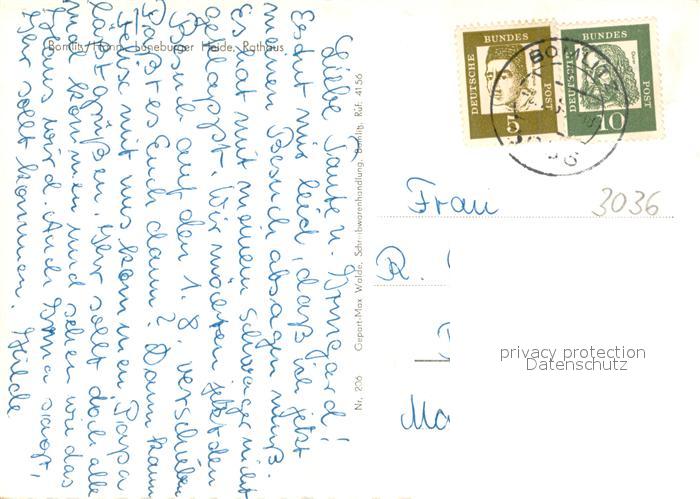 Bomlitz/Hann. Lüneburger Heide, Rathaus
Liebe Tante u. Irmgard!
Es tut mir leid, daß ich jetzt
meinen Besuch absagen muß.
Es hat mit meinem Schwager nicht
geklappt. Wir möchten jetzt den
Besuch auf den 1.8. verschieben
Paßt es Euch dann? Dann kann
mit uns kommen. Papa
läßt grüßen. Ihr sollt doch alle
mal kommen und sehen wie das
Haus wird. Auch Oma sagt,
Ihr sollt kommen. Hilde
Nr. 206 Gepart-Max Walde, Schreibwarenhandlung, Bomlitz, Ruf: 4156
DEUTSCHE BUNDES POST 5
DEUTSCHE BUNDES POST 10
BOMLITZ
Frau
3036
R.
Ma
privacy protection
Datenschutz